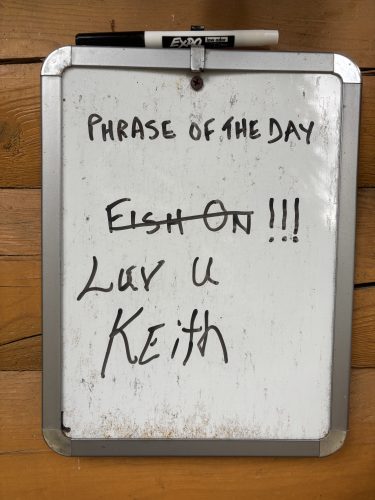 EXPO
PHRASE OF THE DAY
FISH ON !!!
Luv u
Keith